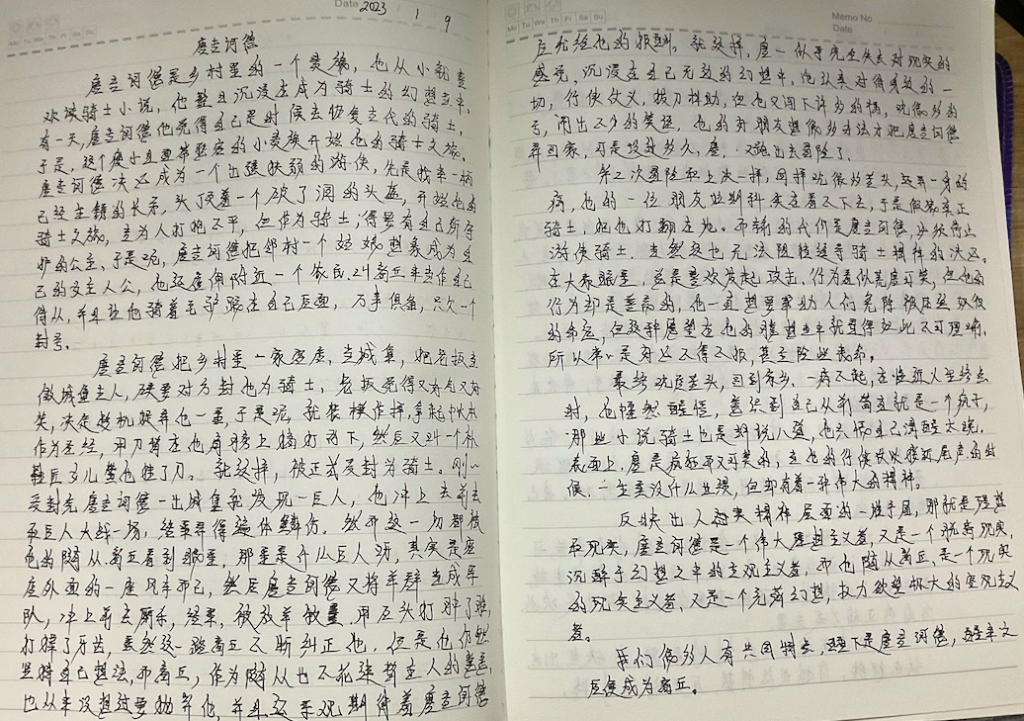 Date 2023 1 9
Mo Tu We Th Fr Sa Su
唐吉诃德
唐吉诃德是乡村里的一个贵族，他从小就喜
欢读骑士小说，他整日沉浸在成为骑士的幻想当中，
有一天，唐吉诃德他觉得自己是时候去恢复古代的骑士，
于是，这个瘦小且面带坚定的小贵族开始他的骑士之旅。
唐吉诃德决心成为一个出强扶弱的游侠，先是找来一柄
已经生锈的长矛，头顶戴着一个破了洞的头盔，开始他的
骑士之旅，立为人打抱不平，但作为骑士，得要有自己所守
护的公主，于是呢，唐吉诃德把邻村一个姑娘想象成为自
己的女主人公，他还雇佣附近一个农民，叫桑丘来当作自己
侍从，并且让他骑着毛驴跟在自己后面，万事俱备，只欠一个
封号。
唐吉诃德把乡村里一家客店，当城堡，把老板当
做城堡主人，硬要对方封他为骑士，老板觉得又好气又好
笑，决定趁机戏弄他一番，于是呢，就装模作样，拿起
作为圣经，用刀背在他肩膀上敲打两下，然后又叫一个
女儿替他挂了刀。就这样，被正式受封为骑士。刚
受封完唐吉诃德一出城堡就发现一巨人，他冲上去前去
和巨人大战一场，结果弄得遍体鳞伤。然而这一切都被
他的随从桑丘看到眼里，那里是什么巨人呀，其实是
外面的一座风车而已，然后唐吉诃德又将羊群当成军
队，冲上前去厮杀，结果，被放羊牧童，用石头打肿了脸，
打掉了牙齿，虽然这一路桑丘不断纠正他，但是他仍然
坚持自己想法，而桑丘，作为随从也不
也从来没想过要抛弃他，并且还乐观期待着唐吉诃德
Mo Tu We Th Fr Sa Su
Memo No
Date
应允给他的报酬。就这样，唐 似乎完全失去对现实的
感觉，沉浸在自己无数的幻想中，他认真对待所做的一
切，行侠仗义，拔刀相助，但他又闯下许多的祸，吃很多的
亏，闹出不少的笑话，他的好朋友想很多办法才把唐吉诃德
弄回家，可是没过多久，唐 又跑出去冒险了。
第二次冒险和上次一样，同样吃很多苦头，还弄一身的
病，他的一位朋友 实在看不下去，于是假装真正
骑士，把他打翻在地。而输的代价是唐吉诃德，必须停止
游侠骑士，虽然这也无法阻拦
在大家眼里，总是喜欢发起攻击，行为看似荒唐可笑，但他的
行为却是善意的，他一直想要帮助人们免除被压迫奴役
的命运，但这种愿望在他的臆想当中就显得如此不可理喻，
所以常常是好心不得好报，甚至险些丧命。
最终吃尽苦头，回到家乡，一病不起，在临近人生终点
时，他幡然醒悟，意识到自己从前简直就是一个疯子，
那些小说骑士也是胡说八道，他只恨自己清醒太晚。
表面上，唐是疯狂而又可笑的，
候，一生虽没什么业绩，但却有着一种伟大的精神。
反映出人 精神层面的一些矛盾，那就是理想
和现实，唐吉诃德是一个伟大理想主义者，又是一个脱离现实，
沉醉于幻想之中的主观主义者，而他随从桑丘，是一个现实
的现实主义者，又是一个充满幻想，权力欲望极大的
者。
我们很多人有共同特点， 下是唐吉诃德，
后便成为桑丘。